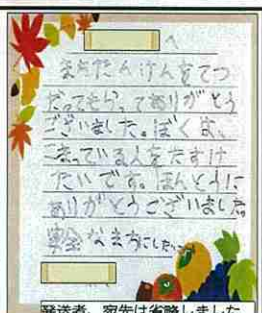 へ
まちたんけんをてつ
だってもらってありがとう
ございました。ぼくは、
こまっている人をたすけ
たいです。ほんとうに
ありがとうございました。
安全なまちにしたい
発送者、宛先は省略しました